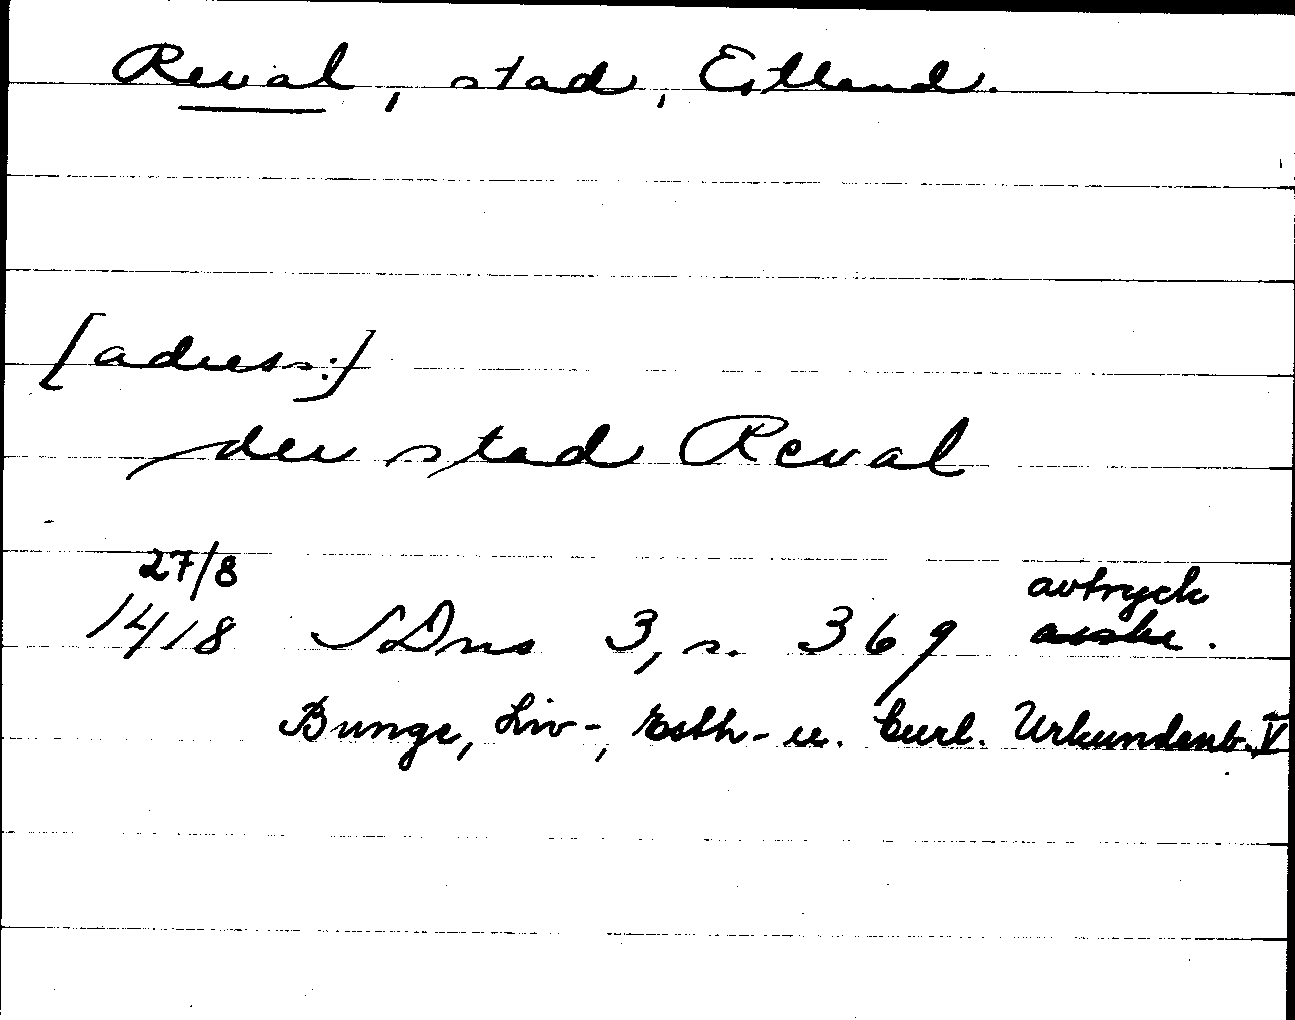 Reval, stad, Estland.
[adress:]
der stad Reval
27/8
1418 SDns 3, s. 369 avtryck
Bunge, Liv-, Esth- u. Curl. Urkundenb. V